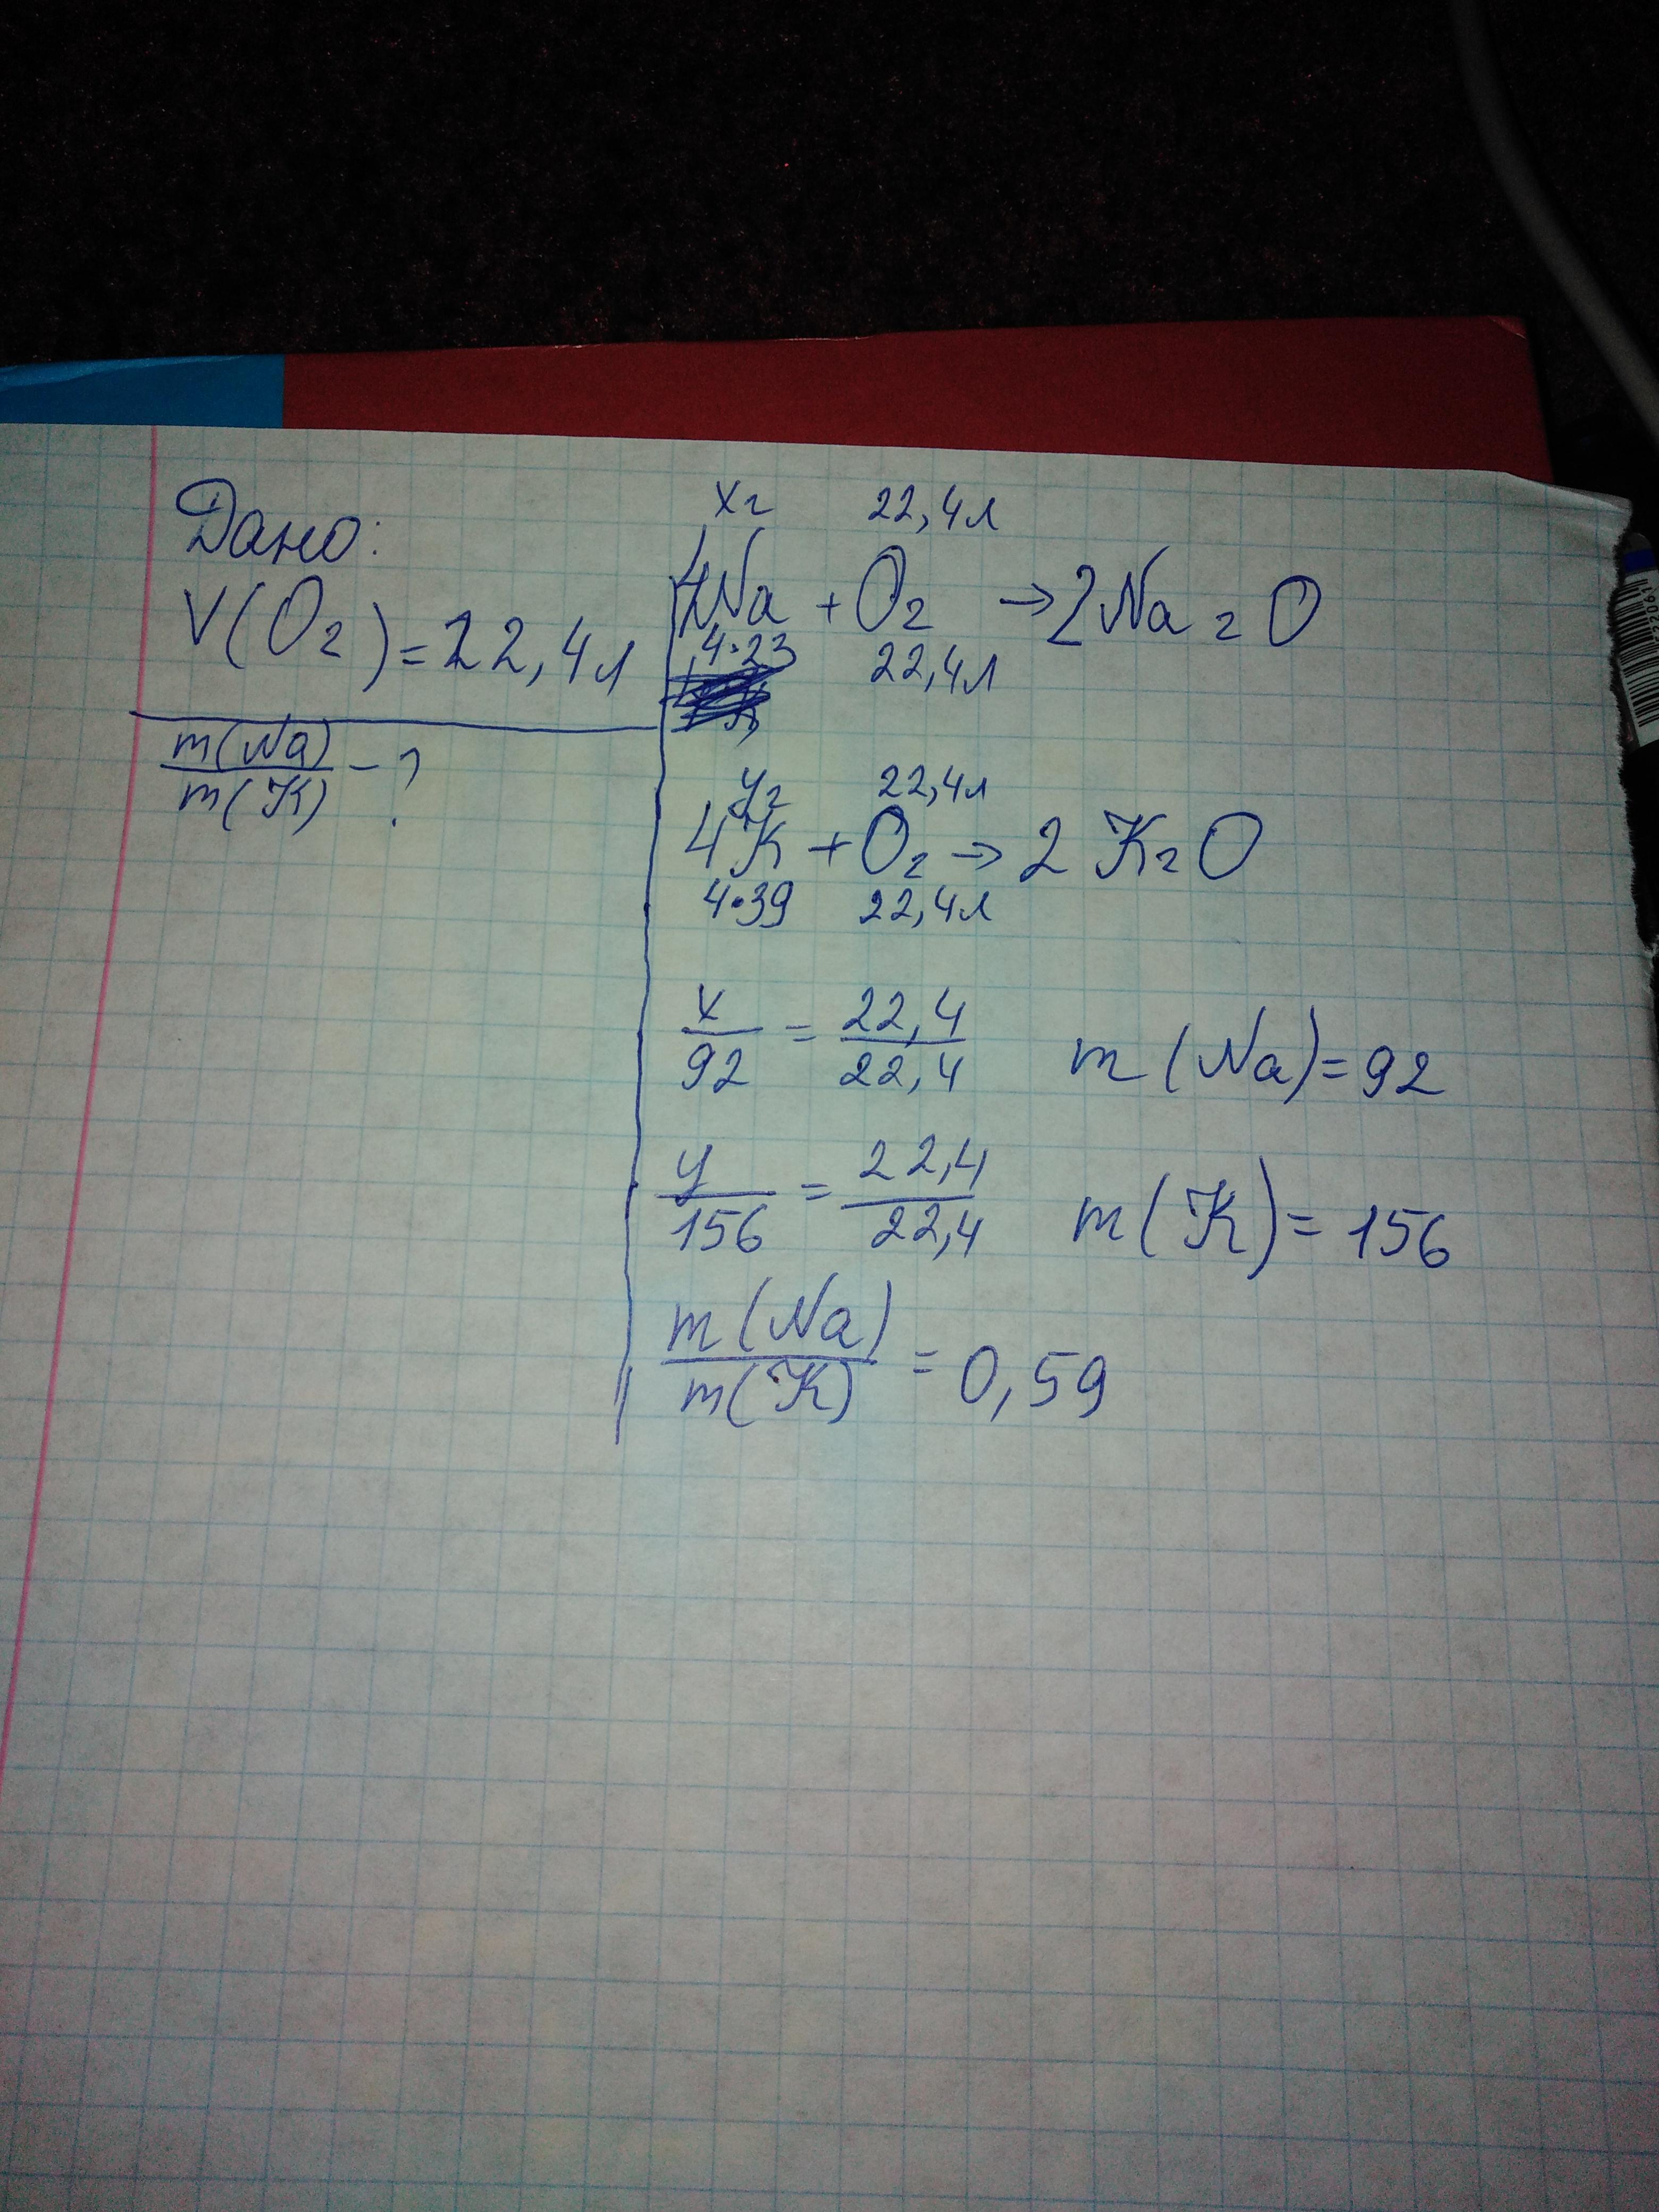 Дано:
V(O2)=22,4л
m(Na)
m(K)
-?
xг 22,4л
4Na + O2 → 2Na2O
4·23 22,4л
yг 22,4л
4K + O2 → 2K2O
4·39 22,4л
x/92 = 22,4/22,4 m(Na)=92
y/156 = 22,4/22,4 m(K)=156
m(Na)/m(K) = 0,59